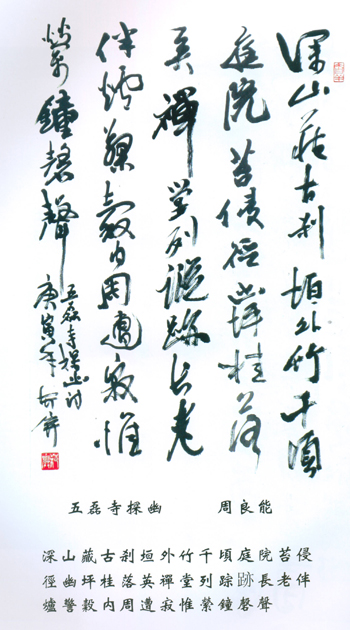 深山藏古刹垣外竹千頃
庭院苔侵徑幽坪桂落
英禪堂列蹤跡長老
伴爐內周遭寂惟
鐘磬聲
五磊寺探幽詩
庚寅年
五磊寺探幽 周良能
深山藏古刹垣外竹千頃庭院苔侵
徑幽坪桂落英禪堂列踪跡長老伴
爐警穀內周遭寂惟縈鐘磬聲